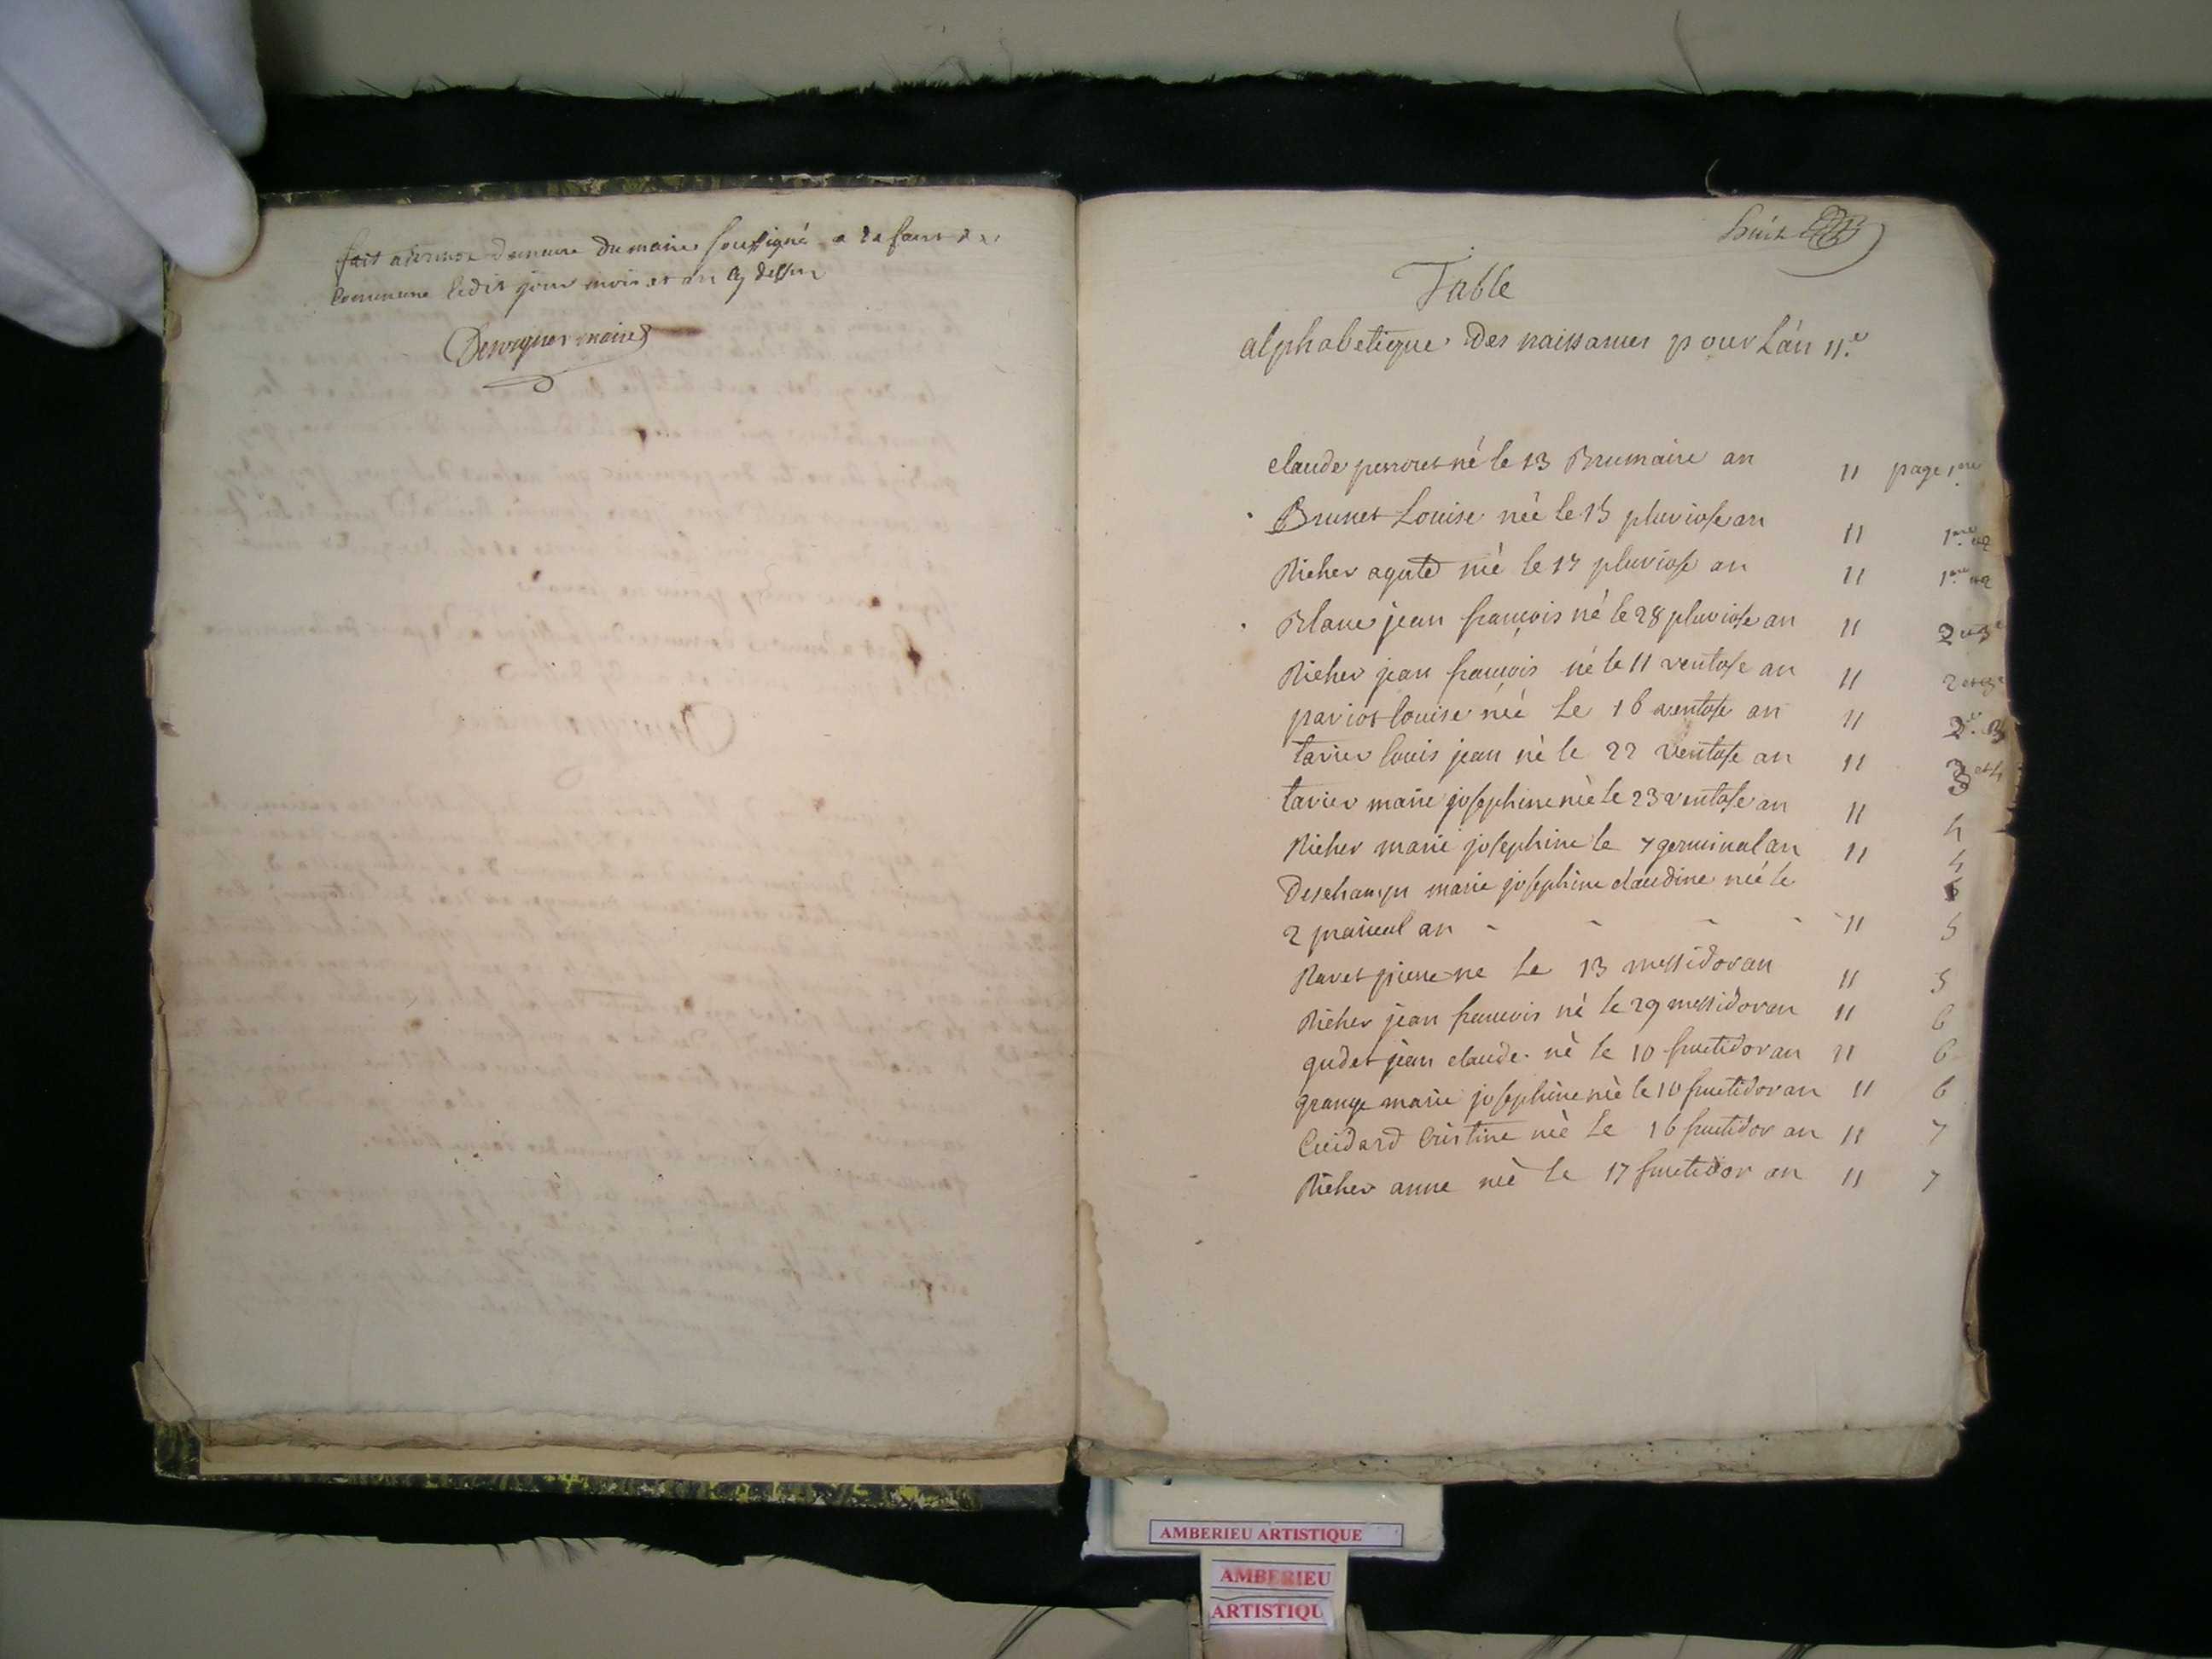 fait a du maire soussigné a
Commune ledit jour mois et an cy dessus
maire
huit
Table
alphabetique des naissances pour L'an 11.e
claude perrout né le 13 Brumaire an 11 page 1ere
Brunet Louise neè le 15 pluviose an 11 1ere et 2
Richer né le 17 pluviose an 11 1ere et 2
Blanc jean françois né le 28 pluviose an 11 2 et 3e
Richer jean francois né le 11 ventose an 11 2 et 3e
louise neé Le 16 ventose an 11
tavier louis jean nè le 22 ventose an 11 3 et 4
tavier marie josephine neè le 23 ventose an 11 4
Richer marie josephine le 7 germinal an 11 4
Deschamps marie josephine claudine neé le
2 prairial an - - - - 11 5
Ravet pierre ne Le 13 messidor an 11 5
Richer jean francois né le 29 messidor an 11 6
gudet jean claude nè le 10 fructidor an 11 6
grange marie josephine neè le 10 fructidor an 11 6
Cuidard Cristine neè Le 16 fructidor an 11 7
Richer anne neè Le 17 fructidor an 11 7
AMBERIEU ARTISTIQUE
AMBERIEU
ARTISTIQU